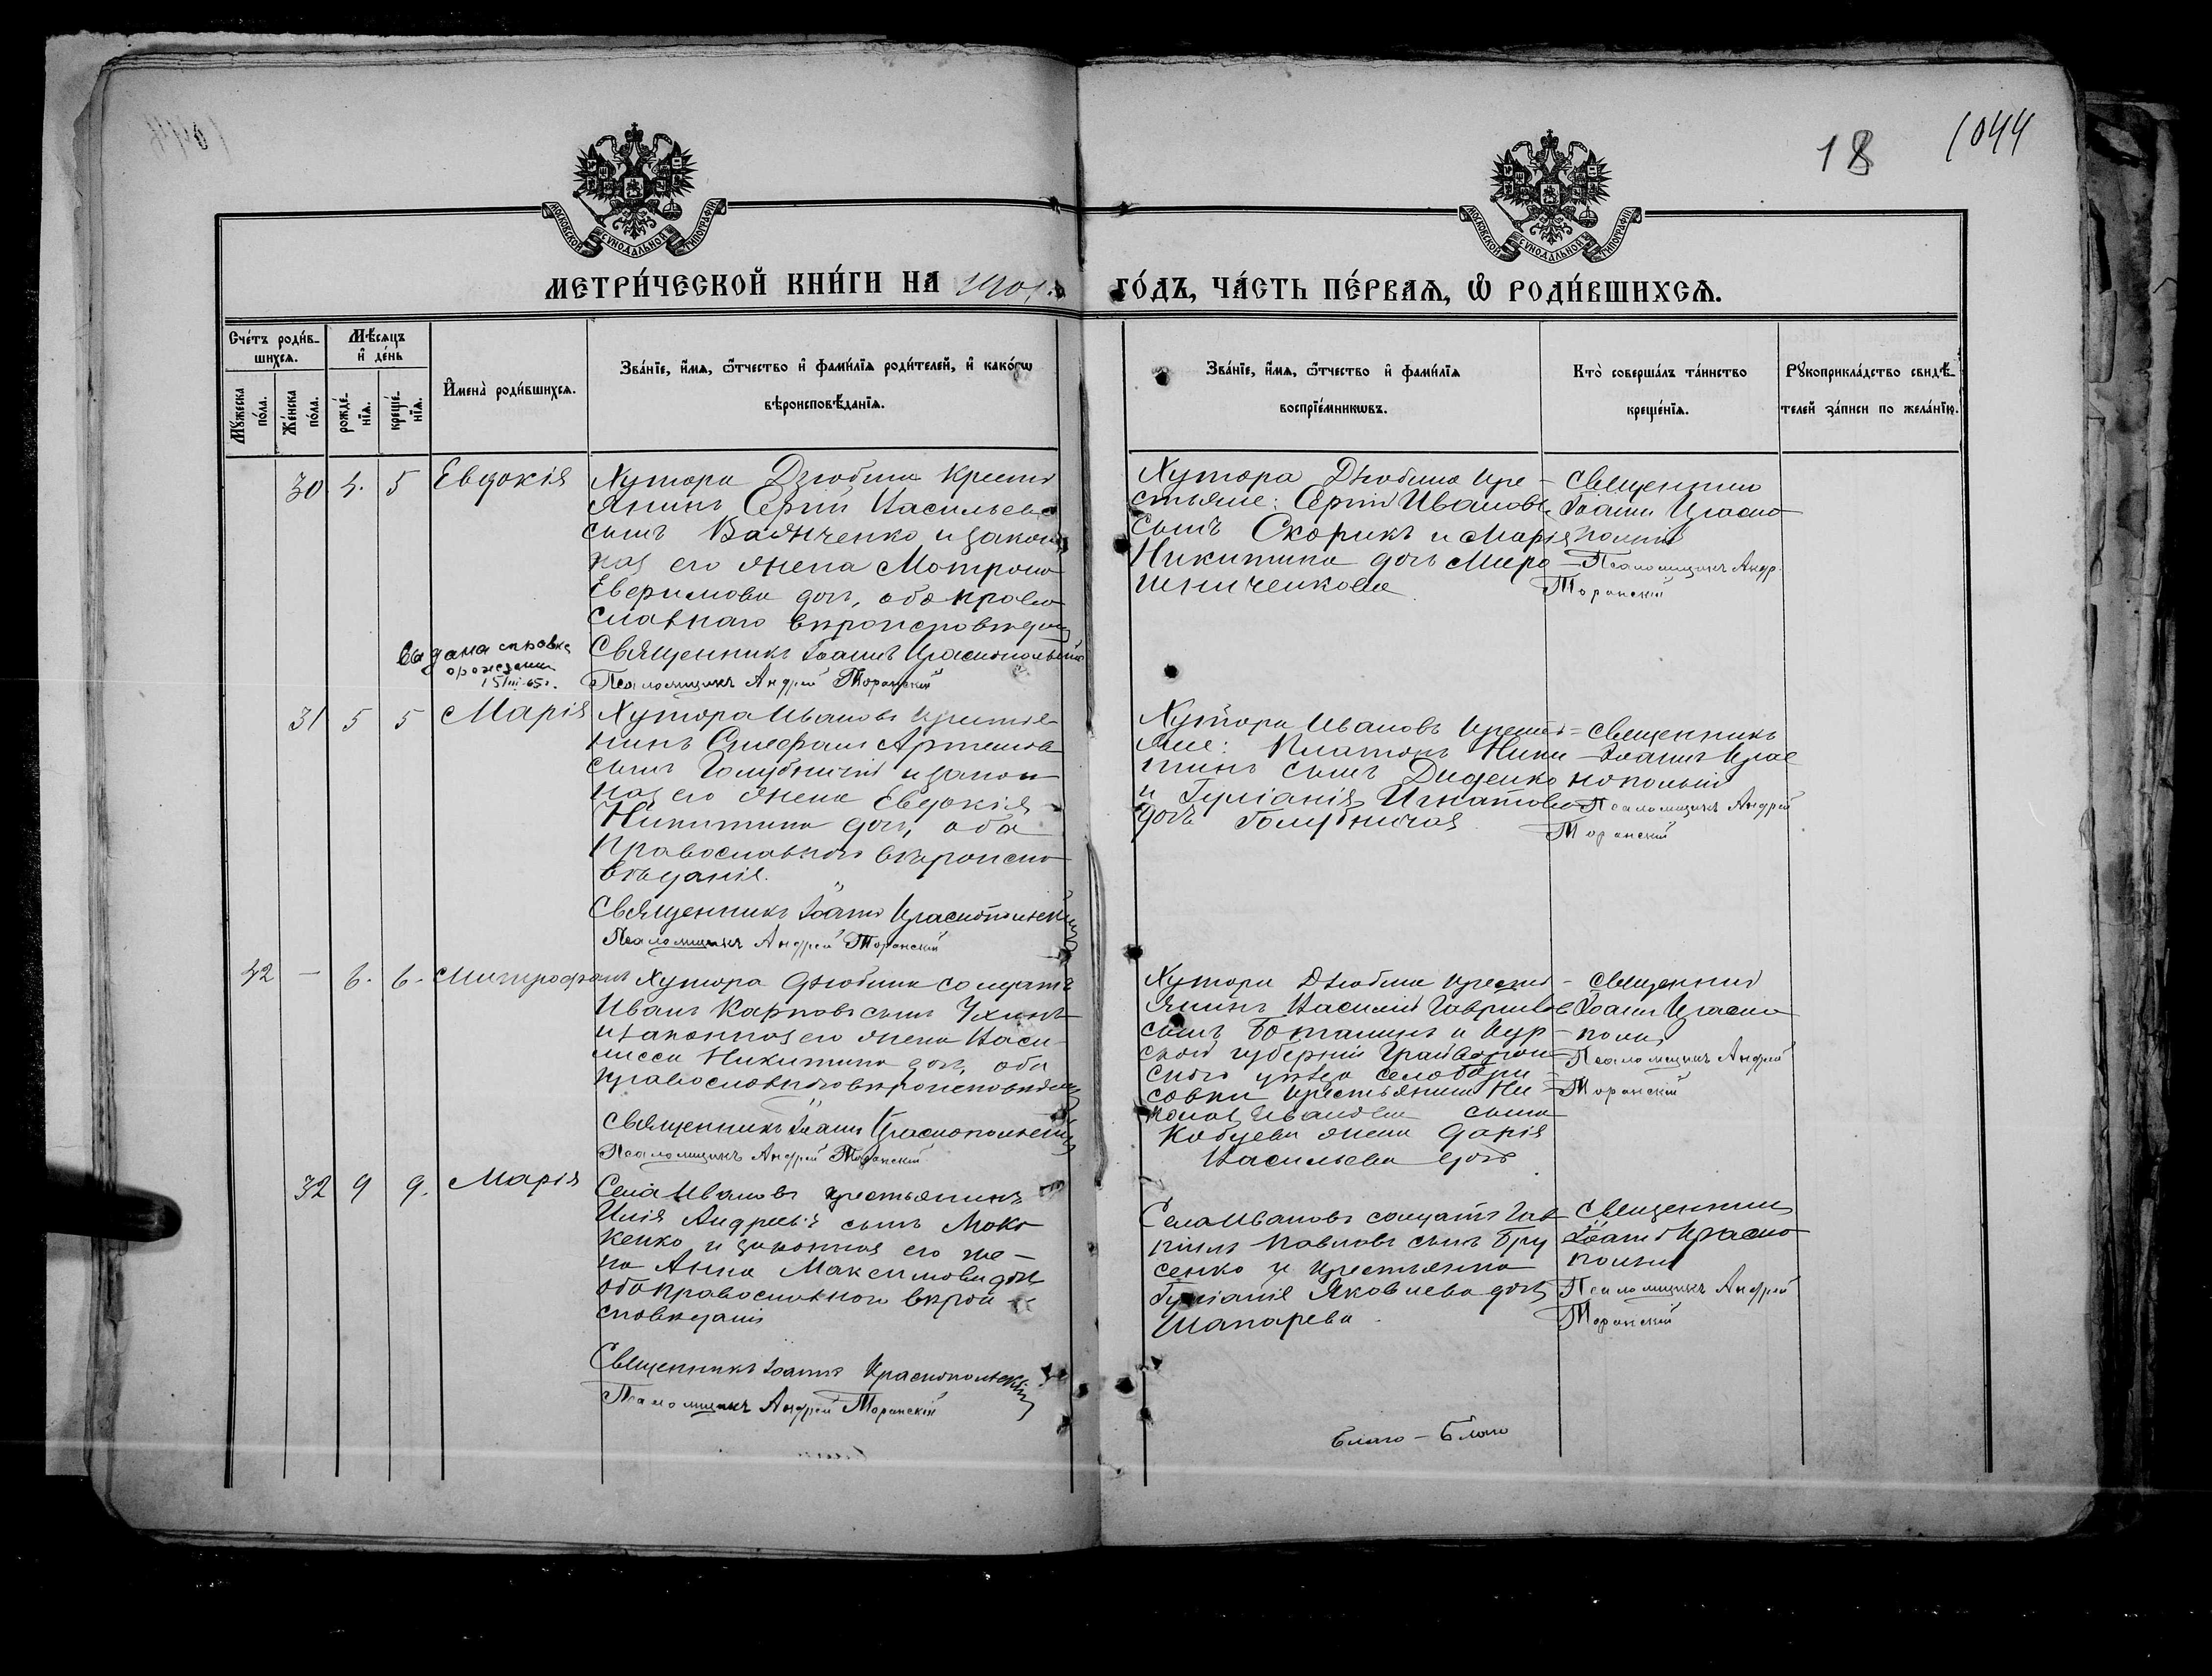 18
1044
МОСКОВСКОЙ СѴНОДАЛЬНОЙ ТИПОГРАФІИ
МОСКОВСКОЙ СѴНОДАЛЬНОЙ ТИПОГРАФІИ
МЕТРИ́ЧЕСКОЙ КНИ́ГИ НА 1901
ГО́ДЪ, ЧА́СТЬ ПЕ́РВАѦ, Ѡ҆ РОДИ́ВШИХСѦ.
Сче́тъ роди́в-
шихсѧ.
Мѣ́сѧцъ
и҆ де́нь
Мꙋ́жеска
по́ла.
Же́нска
по́ла.
рожде́-
нїѧ.
креще́-
нїѧ.
И҆мена̀ роди́вшихсѧ.
Зва́нїе, и҆́мѧ, ѻ҆́тчество и҆ фами́лїѧ роди́телей, и҆ како́гѡ
вѣроисповѣ́данїѧ.
Зва́нїе, и҆́мѧ, ѻ҆́тчество и҆ фами́лїѧ
воспрїе́мникѡвъ.
Кто̀ соверша́лъ та́инство
креще́нїѧ.
Рꙋкоприкла́дство свидѣ́-
телей за́писи по жела́нїю.
30 4. 5 Евдокія
Хутора Дзюбина крестья
янинъ Сергій Васильевъ
сынъ и закон
ная его жена Матрона
дочь, оба право
славнаго вѣроисповѣданія
Священникъ Іоаннъ Краснопольскій
Псаломщикъ Андрей Торанскій
Хутора Дзюбина кре-
стьяне: Сергій Ивановъ
сынъ Скорикъ и Марія
Никитина дочь Миро
шниченкова
Священникъ
Іоаннъ Красно
польскій
Псаломщикъ Андр.
Торанскій
Выдана справка
о рождении
15/III-65г.
31 5 5 Марія
Хутора Ивановъ крестья
нинъ Стефанъ Артемовъ
сынъ Голубничій и закон
ная его жена Евдокія
Никитина дочь, оба
Православнаго вѣроиспо
вѣданія.
Священникъ Іоаннъ Краснопольскій
Псаломщикъ Андрей Торанскій
Хутора Ивановъ крестья
яне: Платонъ Ники
тинъ сынъ Диденко
и Гуліанія Игнатова
дочь Голубничая
Священникъ
Іоаннъ Крас
нопольскій
Псаломщикъ Андрей
Торанскій
42 — 6. 6. Митрофанъ
Хутора Дзюбина солдатъ
Иванъ Карповъ сынъ
и законная его жена Васи
лисса Никитина дочь, оба
православнаго вѣроисповѣданія
Священникъ Іоаннъ Краснопольскій
Псаломщикъ Андрей Торанскій
Хутора Дзюбина крестья
янинъ Василій Гавриловъ
сынъ и Кур
ской губерніи Грайворон
скаго уѣзда села Бори
совки крестьянина Ни
колая Иванова сына
жена Дарія
Васильева дочь
Священникъ
Іоаннъ Красно
поль
Псаломщикъ Андрей
Торанскій
32 9 9. Марія
Села Ивановъ крестьянинъ
Илія Андреевъ сынъ Моко
кенко и законная его же-
на Анна Максимова дочь
оба православнаго вѣрои
сповѣданія
Священникъ Іоаннъ Краснопольскій
Псаломщикъ Андрей Торанскій
Села Ивановъ солдатъ Гав
ріилъ Павловъ сынъ Бру
сенко и крестьянка
Гуліанія Яковлева дочь
Шапарева
Священникъ
Іоаннъ Красно
польскій
Псаломщикъ Андрей
Торанскій
Благо-Благо